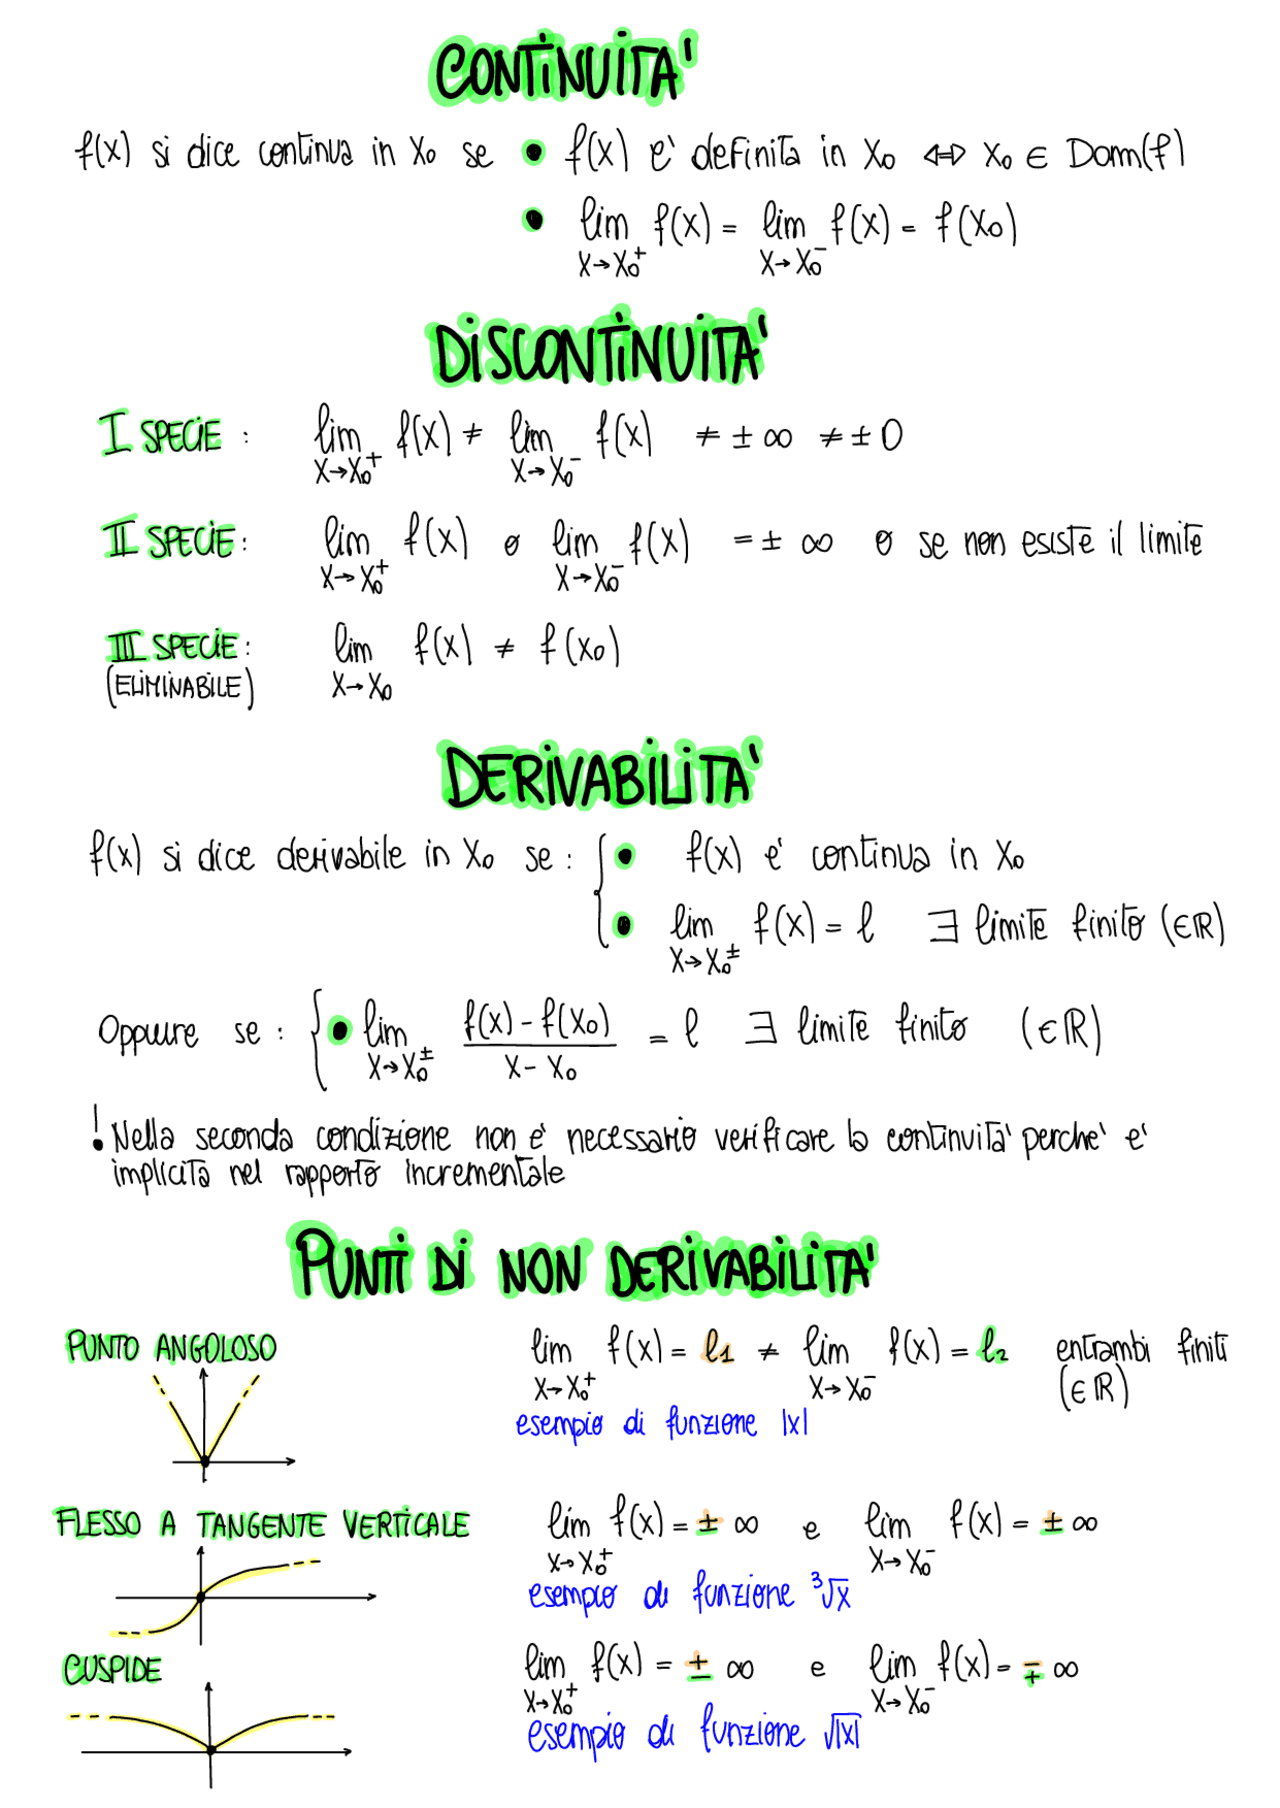 CONTINUITA'
f(x) si dice continua in x₀ se • f(x) e' definita in x₀ ⇔ x₀ ∈ Dom(f)
• lim x→x₀⁺ f(x) = lim x→x₀⁻ f(x) = f(x₀)
DISCONTINUITA'
I SPECIE : lim x→x₀⁺ f(x) ≠ lim x→x₀⁻ f(x) ≠ ± ∞ ≠ ± 0
II SPECIE : lim x→x₀⁺ f(x) o lim x→x₀⁻ f(x) = ± ∞ o se non esiste il limite
III SPECIE : lim x→x₀ f(x) ≠ f(x₀)
(ELIMINABILE)
DERIVABILITA'
f(x) si dice derivabile in x₀ se : { • f(x) e' continua in x₀
• lim x→x₀± f(x) = l ∃ limite finito (∈ℝ)
Oppure se : { • lim x→x₀± (f(x) - f(x₀))/(x - x₀) = l ∃ limite finito (∈ℝ)
! Nella seconda condizione non e' necessario verificare la continuita' perche' e'
implicita nel rapporto incrementale
PUNTI DI NON DERIVABILITA'
PUNTO ANGOLOSO lim x→x₀⁺ f(x) = l₁ ≠ lim x→x₀⁻ f(x) = l₂ entrambi finiti
(∈ℝ)
esempio di funzione |x|
FLESSO A TANGENTE VERTICALE lim x→x₀⁺ f(x) = ± ∞ e lim x→x₀⁻ f(x) = ± ∞
esempio di funzione ³√x
CUSPIDE lim x→x₀⁺ f(x) = ± ∞ e lim x→x₀⁻ f(x) = ∓ ∞
esempio di funzione √|x|